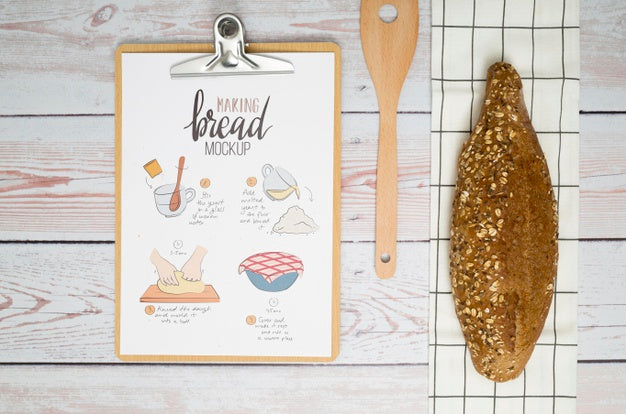 MAKING
bread
MOCKUP
1
Mix
the yeast
in a glass
of warm
water
2
Add
melted
yeast to
the flour
and knead
it
3
Knead the dough
and mold it
into a ball
4
Cover and
make it rest
in a warm place